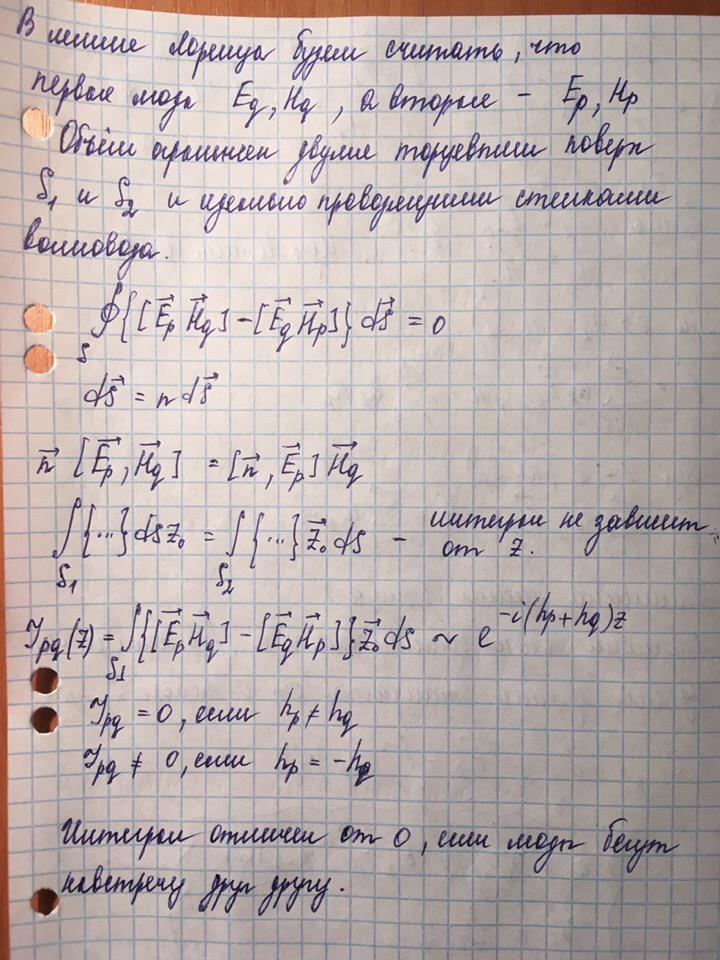 В лемме Лоренца будем считать, что
первая мода E_q, H_q, а вторая – E_p, H_p
Объём ограничен двумя торцевыми поверх
S_1 и S_2 и идеально проводящими стенками
волновода.
∮_S {[E⃗_p H⃗_q] – [E⃗_q H⃗_p]} dS⃗ = 0
dS⃗ = n dS⃗
n⃗ [E⃗_p, H⃗_q] = [n⃗, E⃗_p] H⃗_q
∫_{S_1} {...} dS z⃗_0 = ∫_{S_2} {...} z⃗_0 dS – интеграл не зависит
от z.
J_pq(z) = ∫_{S_1} {[E⃗_p H⃗_q] – [E⃗_q H⃗_p]} z⃗_0 dS ~ e^{-i(h_p+h_q)z}
J_pq = 0, если h_p ≠ h_q
J_pq ≠ 0, если h_p = -h_q
Интеграл отличен от 0, если моды бегут
навстречу друг другу.